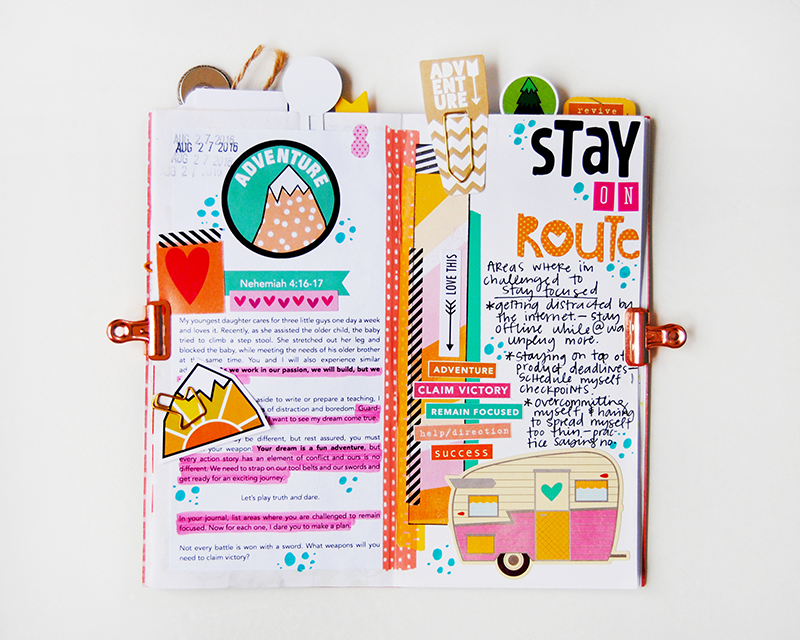 AUG 27 2016
AUG 27 2016
AUG 27 2016
ADVENTURE
Nehemiah 4:16-17
My youngest daughter cares for three little guys one day a week
and loves it. Recently, as she assisted the older child, the baby
tried to climb a step stool. She stretched out her leg and
blocked the baby, while meeting the needs of his older brother
at the same time. You and I will also experience similar
as we work in our passion, we will build, but we
aside to write or prepare a teaching, I
of distraction and boredom. Guard-
I want to see my dream come true.
may be different, but rest assured, you must
your weapon. Your dream is a fun adventure, but
every action story has an element of conflict and ours is no
different. We need to strap on our tool belts and our swords and
get ready for an exciting journey.
Let's play truth and dare.
In your journal, list areas where you are challenged to remain
focused. Now for each one, I dare you to make a plan.
Not every battle is won with a sword. What weapons will you
need to claim victory?
ADV
ENT
URE
revive
STAY
ON
ROUTE
LOVE THIS
ADVENTURE
CLAIM VICTORY
REMAIN FOCUSED
help/direction
success
AREAS WHERE im
challenged to
stay focused
*getting distracted by
the internet - stay
offline while @
unplug more.
*staying on top of
product deadlines -
schedule myself
checkpoints.
*overcommitting
myself, & having
to spread myself
too thin - prac-
tice saying no